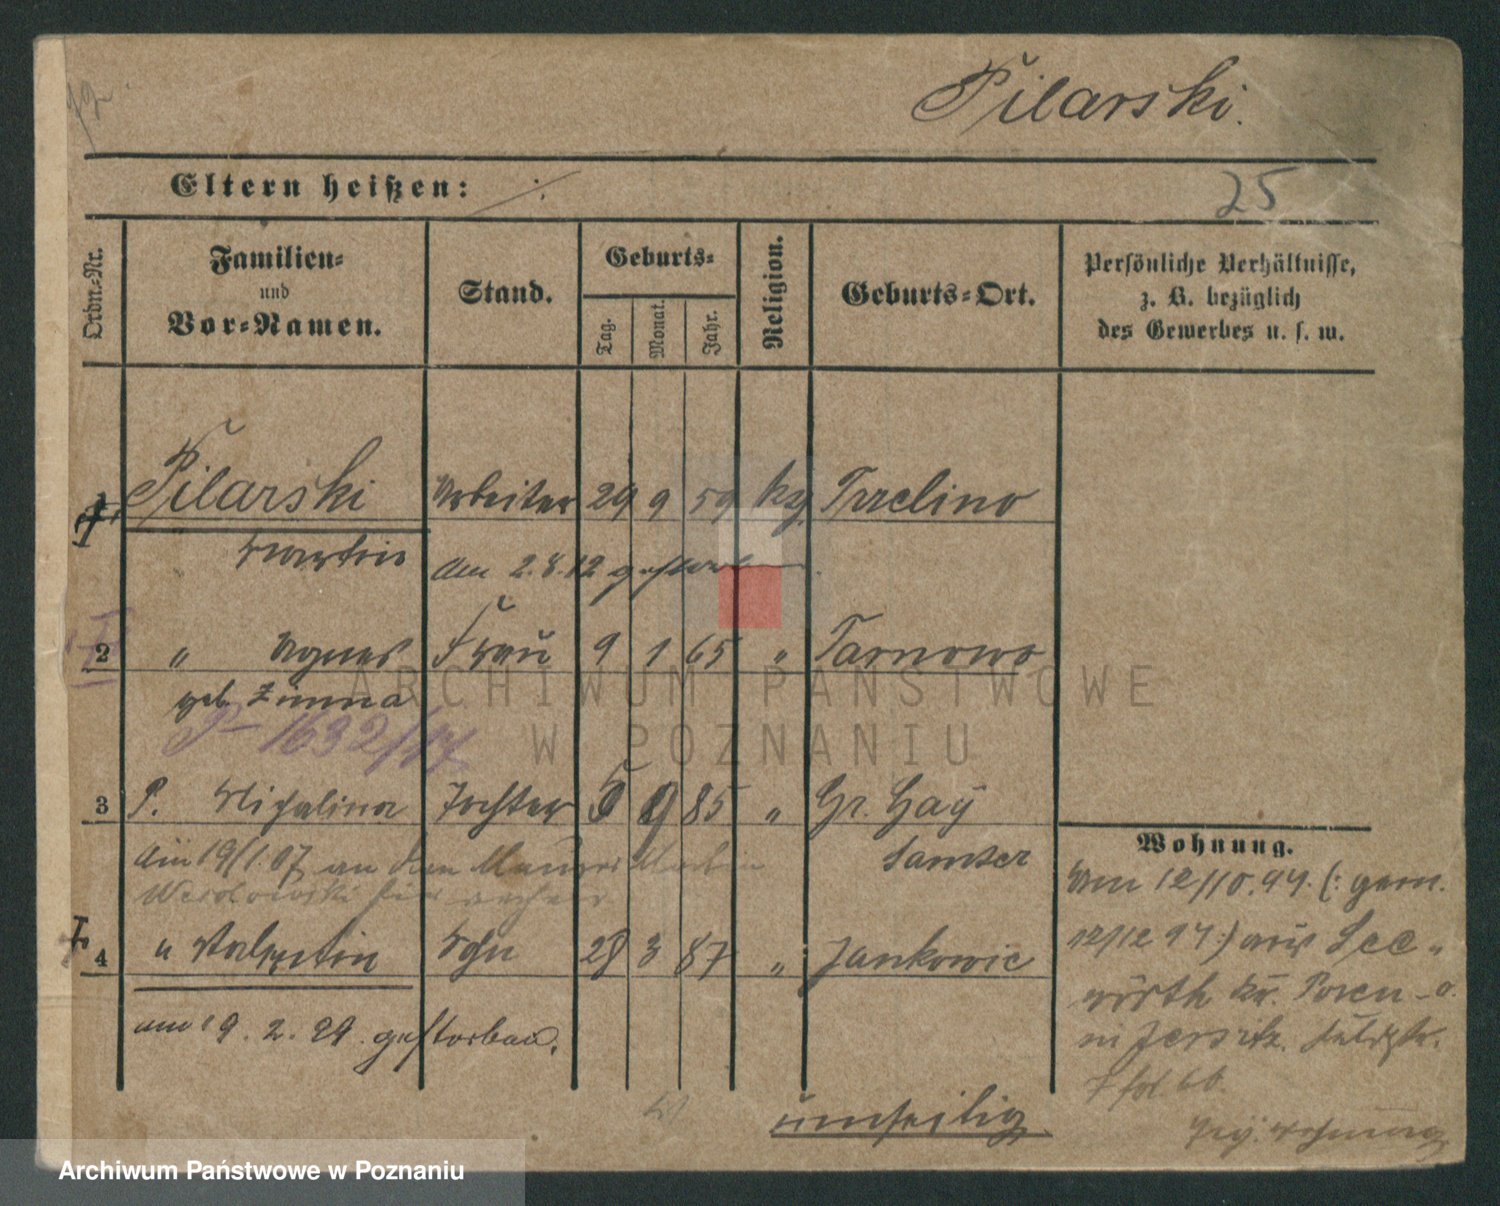 Pilarski.
Eltern heißen:
25
Ordn.-Nr.
Familien-
und
Vor-Namen.
Stand.
Geburts-
Tag.
Monat.
Jahr.
Religion.
Geburts-Ort.
Persönliche Verhältnisse,
z. B. bezüglich
des Gewerbes u. s. w.
1 Pilarski Arbeiter 29 9 59 kg Trzelino
Martin am 2.8.12 gestorben.
2 " Agnes Frau 9 1 65 " Tarnowo
geb. Zimna
P 1632/17
3 P. Michalina Tochter 5 9 85 " Gr. Gay
Samter
am 19/1.07 an den Maurer Martin
4 " Valentin Sohn 28 3 87 " Jankowic
am 19. 2. 99. gestorben.
Wohnung.
Am 12/10.94. (: gem.
12/12 94 :) aus See-
wörth Kr. Posen-O.
in Jersitz.
umseitig
ARCHIWUM PAŃSTWOWE
W POZNANIU
Archiwum Państwowe w Poznaniu